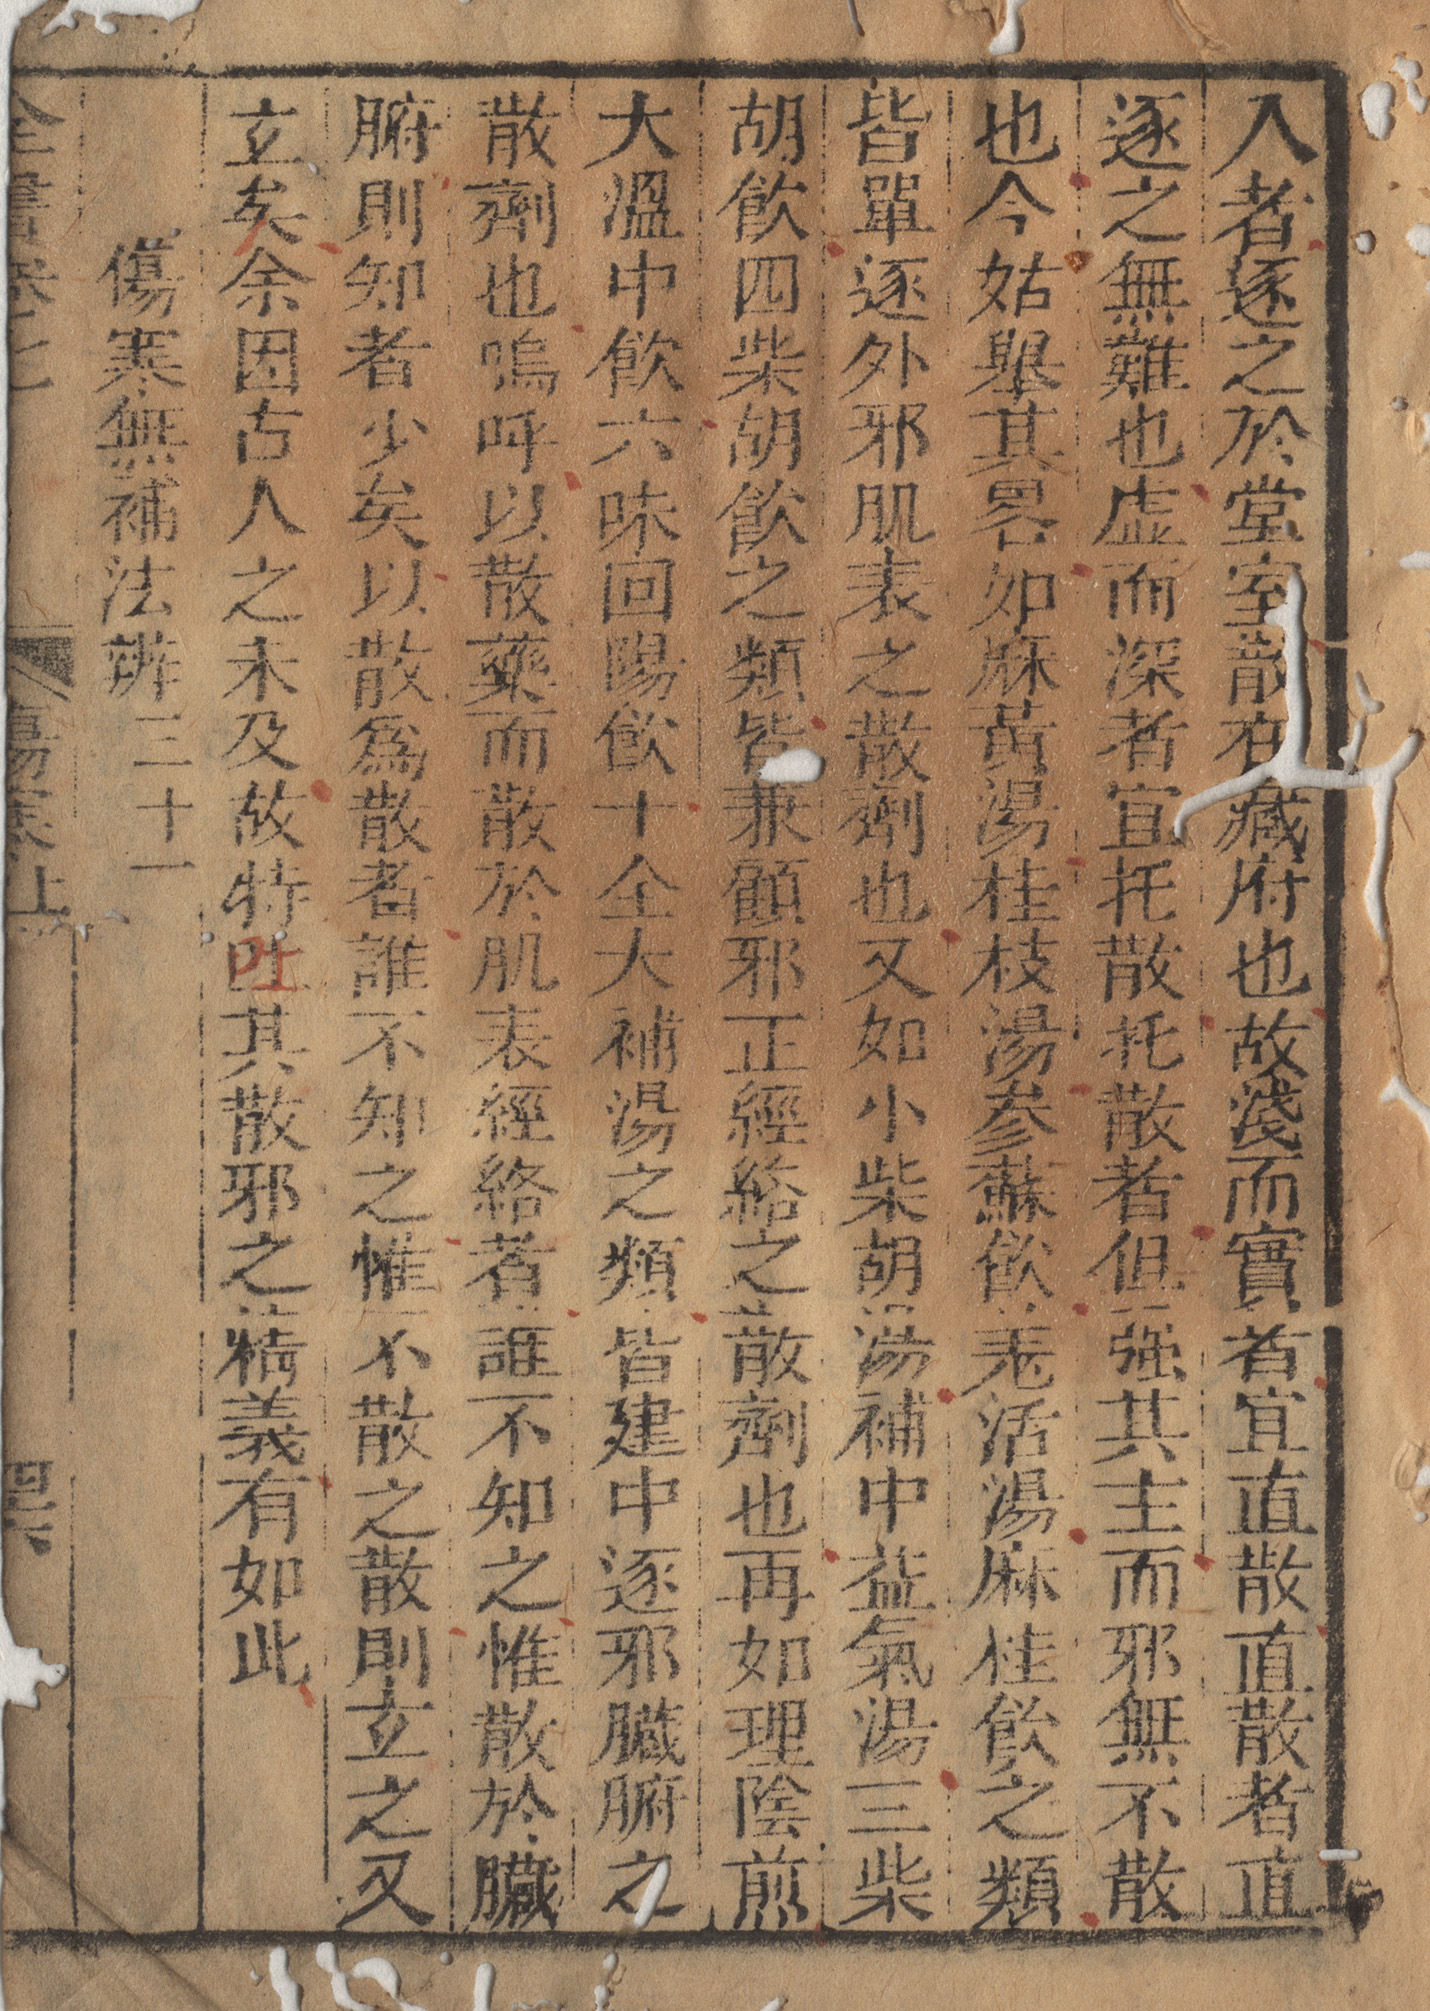 入者逐之於堂室散在藏府也故淺而實者宜直散直散者直
逐之無難也虛而深者宜托散托散者但强其主而邪無不散
也今姑舉其畧如麻黃湯桂枝湯參蘇飲羌活湯麻桂飲之類
皆單逐外邪肌表之散劑也又如小柴胡湯補中益氣湯三柴
胡飲四柴胡飲之類皆兼顧邪正經絡之散劑也再如理陰煎
大溫中飲六味回陽飲十全大補湯之類皆建中逐邪臟腑之
散劑也嗚呼以散藥而散於肌表經絡者誰不知之惟散於臟
腑則知者少矣以散為散者誰不知之惟不散之散則立之又
立矣余因古人之未及故特吐其散邪之精義有如此
傷寒無補法辨三十一
全書卷之七
傷寒上